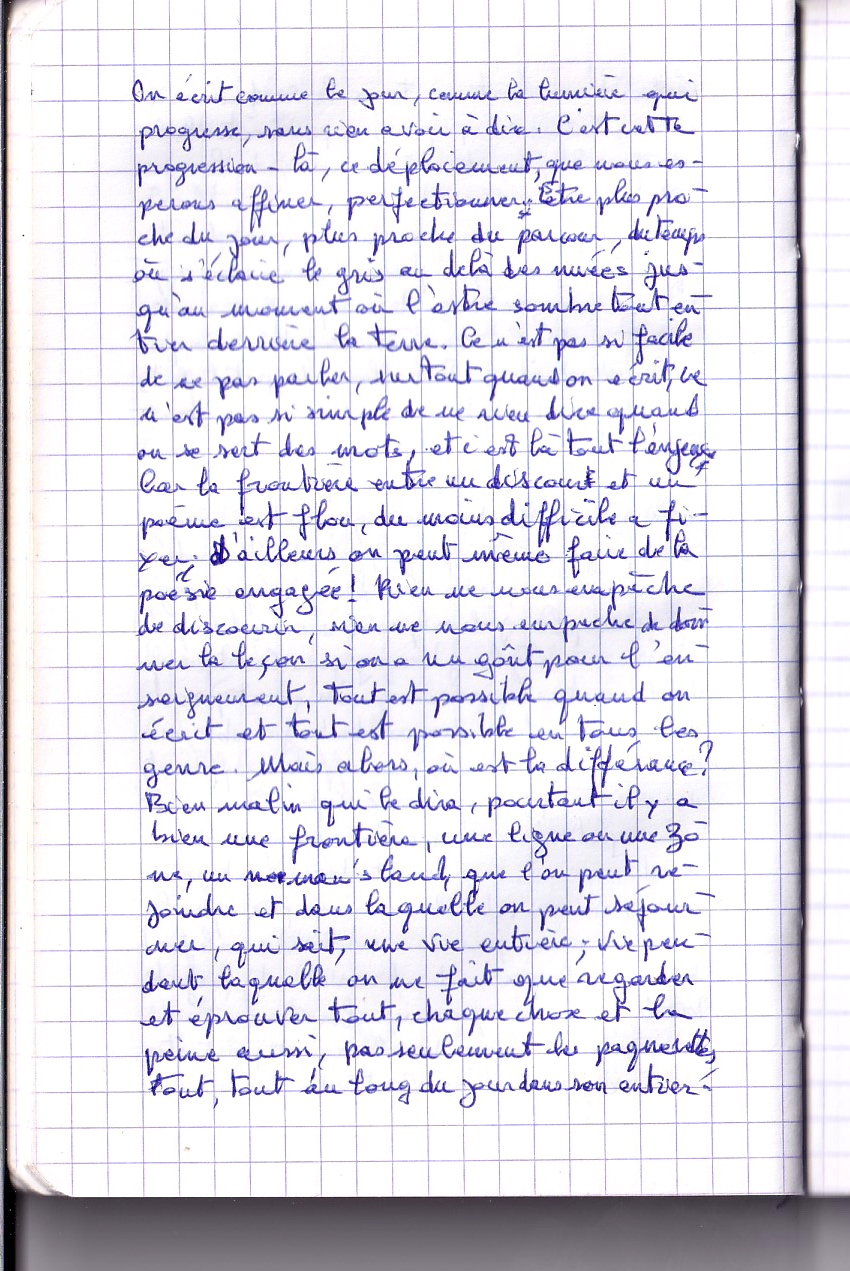 On écrit comme le jour, comme la lumière qui
progresse, sans rien avoir à dire. C'est cette
progression-là, ce déploiement, que nous es-
perons affiner, perfectionner. Etre plus pro-
che du jour, plus proche du parcour, du temps
où s'éclaire le gris au delà des nuées jus-
qu'au moment où l'astre sombre tout en-
tier derrière la terre. Ce n'est pas si facile
de ne pas parler, surtout quand on écrit, ce
n'est pas si simple de ne rien dire quand
on se sert des mots, et c'est là tout l'enjeu
Car la frontière entre un discour et un
poème est flou, du moins difficile a fi-
xer, d'ailleurs on peut même faire de la
poésie engagée! Rien ne nous empêche
de discourir, rien ne nous empêche de don-
ner la leçon si on a un goût pour l'en-
seignement, tout est possible quand on
écrit et tout est possible en tous les
genre. Mais alors, où est la différence?
Bien malin qui le dira, pourtant il y a
bien une frontière, une ligne ou une zô-
ne, un no man's land, que l'on peut re-
joindre et dans laquelle on peut séjour-
ner, qui sait, une vie entière; vie pen-
dant laquelle on ne fait que regarder
et éprouver tout, chaque chose et la
peine aussi, pas seulement les paquerettes,
tout, tout au long du jour dans son entier.